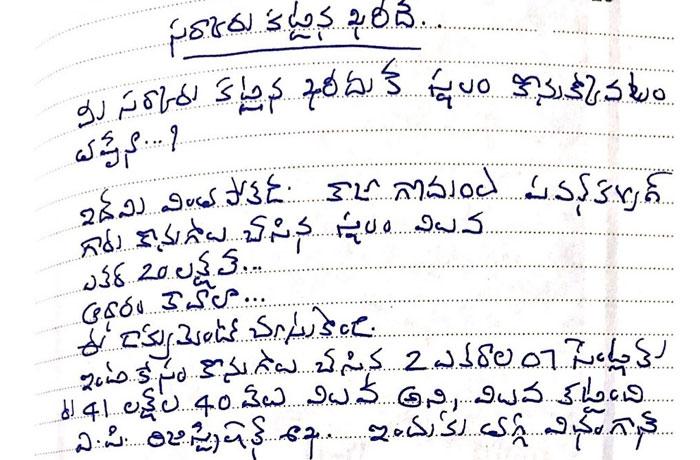 సర్కారు కట్టిన ఖరీదే..
మీ సర్కారు కట్టిన ఖరీదుకే స్థలం కొనుక్కోవటం
తప్పేనా...?
ఇదేమి వింత పోకడ. కాజా గ్రామంలో పవన్ కళ్యాణ్
గారు కొనుగోలు చేసిన స్థలం విలువ
ఎకరం 20 లక్షలే...
ఆధారం కావాలా...
ఈ డాక్యుమెంట్ చూసుకోండి.
ఇంటి కోసం కొనుగోలు చేసిన 2 ఎకరాల 07 సెంట్లకు
రు 41 లక్షల 40 వేలు విలువ అని, విలువ కట్టింది
ఎ.పి. రిజిస్ట్రేషన్ శాఖ. ఇందుకు తగ్గ విధంగానే